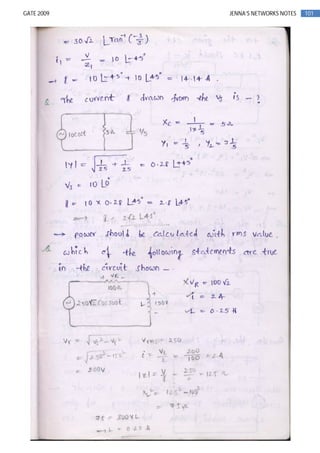 GATE 2009 JENNA'S NETWORKS NOTES 101
= 30√2 ∠Tan⁻¹(-3/3)
i₁ = V/Z₁ = 10 ∠-45°
→ I = 10 ∠-45° + 10 ∠45° = 14.14 A.
Q. The current I drawn from the Vs is - ?
10 cost 5Ω 1/5
Xc = 1/(1×1/5) = 5Ω
Y₁ = 1/5 , Y₂ = j 1/5
|Y| = √(1/25 + 1/25) = 0.28 ∠+45°
Vs = 10 ∠0°
I = 10 × 0.28 ∠45° = 2.8 ∠45°
→ I = 2√2 ∠45°
→ power should be calculated with rms value.
Q. which of the following statements are true
in the circuit shown -
+ VR -
100Ω
250√2 Cos 500t L 150V
X VR = 100√2
i = 2A
L = 0.25 H
VR = √(Vs² - VL²) Vrms = 250
= √(250² - 150²) i = VR/R = 200/100 = 2A
= 200V |Z| = V/I = 250/2 = 125 Ω
XL² = 125² - 100²
= 75Ω
75 = 500 × L